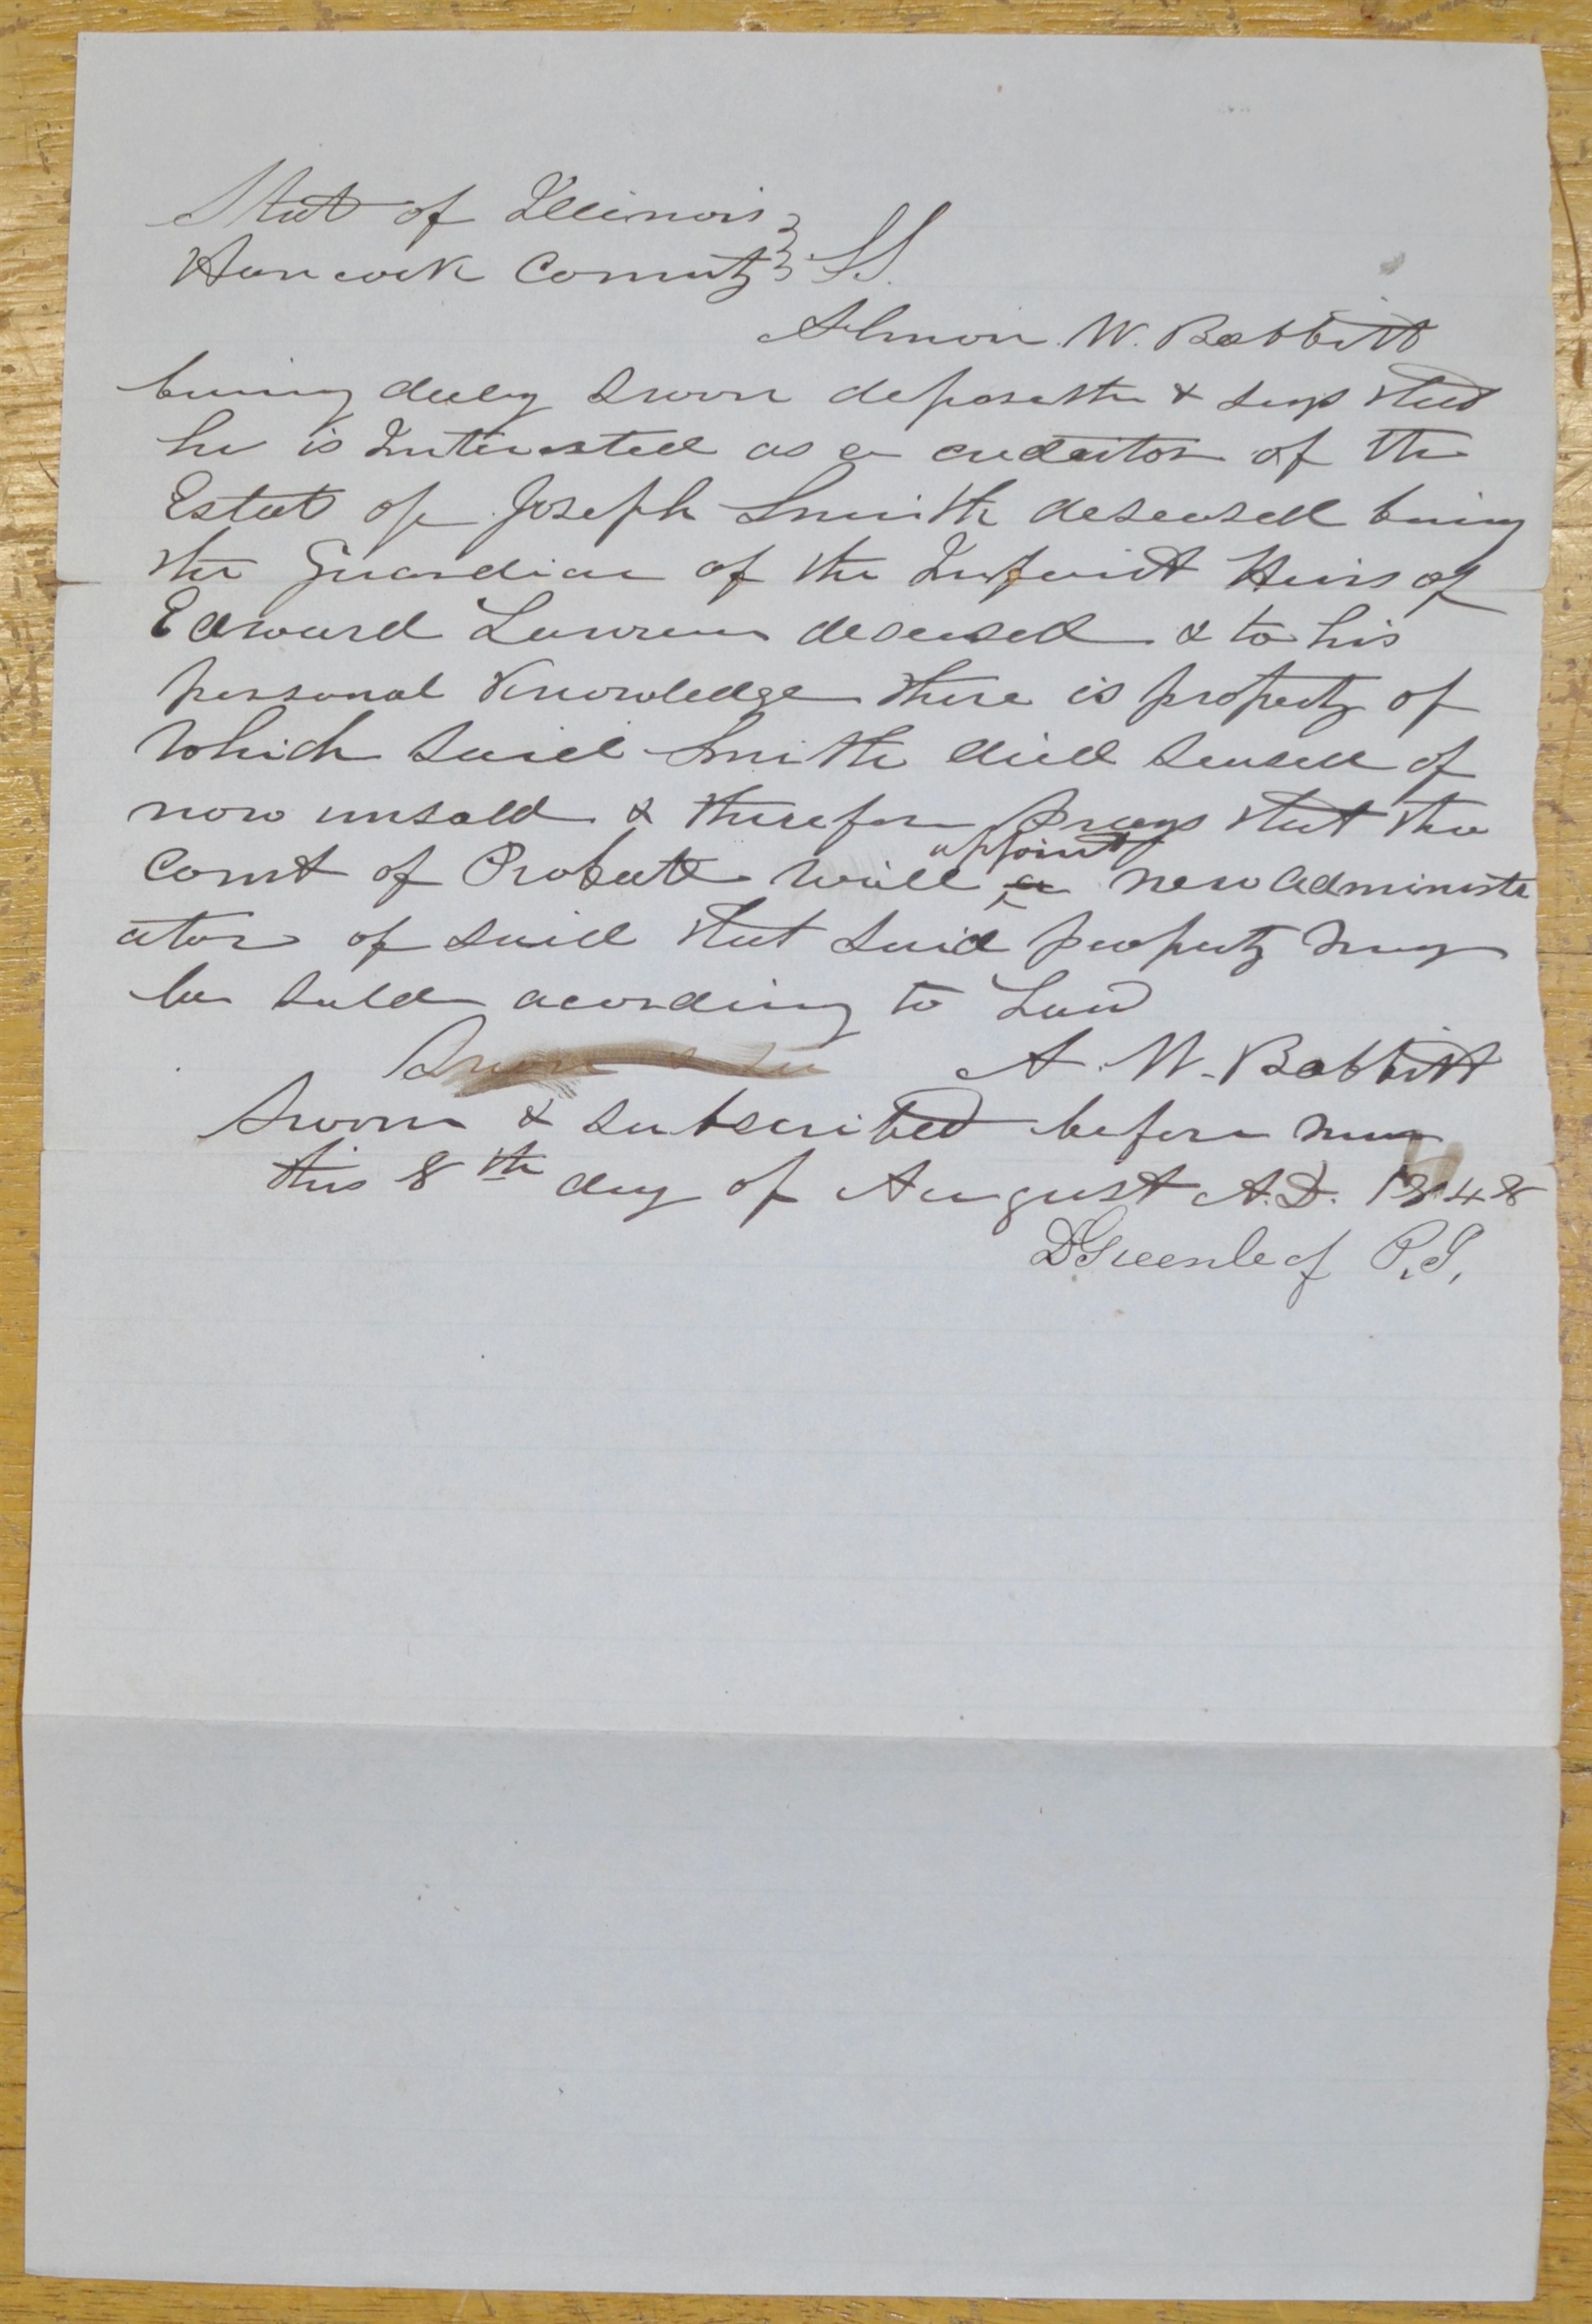 State of Illinois }
Hancock County } SS.
Almon W. Babbitt
being duly sworn deposeth & says that
he is Interested as a creditor of the
Estate of Joseph Smith deseased being
the Guardian of the Infant Heirs of
Edward Lawrence deseased & to his
personal Knowledge there is property of
Which said Smith died seased of
now unsold & therefore Prays that the
Court of Probate will appoint a new administr
ator of said that said property may
be sold acording to Law
Sworn & su A. W. Babbitt
Sworn & subscribed before me
this 8th day of August A.D. 1848
D Greenleaf P. J.